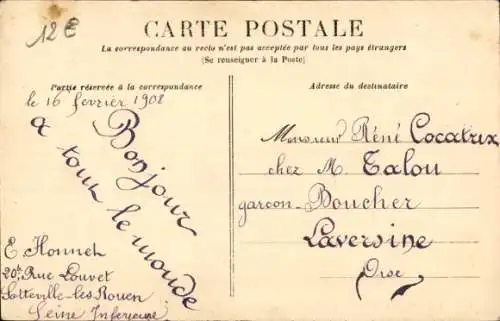 12€
CARTE POSTALE
La correspondance au recto n'est pas acceptée par tous les pays étrangers
(Se renseigner à la Poste)
Partie réservée à la correspondance
le 16 fevrier 1908
Bonjour
a tout le monde
E. Honnet
20 Rue Louvet
Sotteville-les Rouen
Seine Inferieure
Adresse du destinataire
Monsieur Réné Cocatrix
chez M. Talou
garcon-Boucher
Laversine
Oise